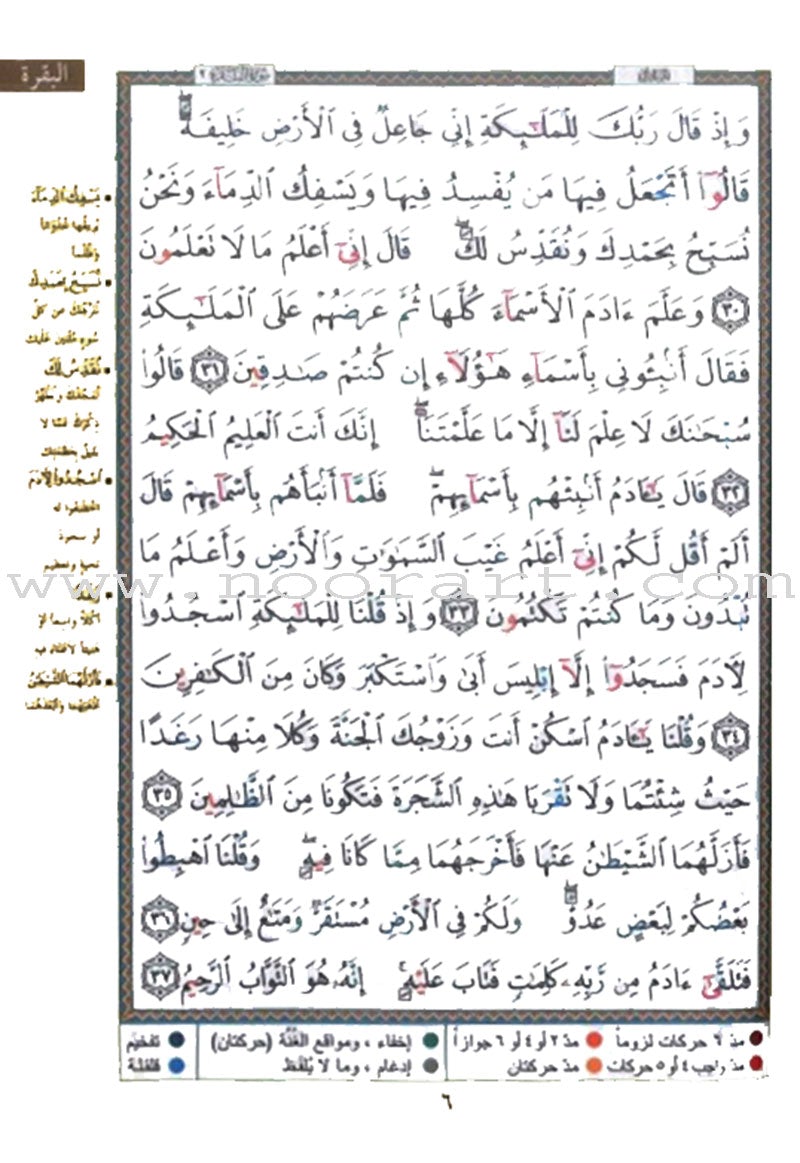 البقرة
سورة البقرة ٢
وَإِذْ قَالَ رَبُّكَ لِلْمَلَٰٓئِكَةِ إِنِّى جَاعِلٌ فِى ٱلْأَرْضِ خَلِيفَةً ۖ
قَالُوٓا۟ أَتَجْعَلُ فِيهَا مَن يُفْسِدُ فِيهَا وَيَسْفِكُ ٱلدِّمَآءَ وَنَحْنُ
نُسَبِّحُ بِحَمْدِكَ وَنُقَدِّسُ لَكَ ۖ قَالَ إِنِّىٓ أَعْلَمُ مَا لَا تَعْلَمُونَ
٣٠ وَعَلَّمَ ءَادَمَ ٱلْأَسْمَآءَ كُلَّهَا ثُمَّ عَرَضَهُمْ عَلَى ٱلْمَلَٰٓئِكَةِ
فَقَالَ أَنۢبِـُٔونِى بِأَسْمَآءِ هَٰٓؤُلَآءِ إِن كُنتُمْ صَٰدِقِينَ ٣١ قَالُوا۟
سُبْحَٰنَكَ لَا عِلْمَ لَنَآ إِلَّا مَا عَلَّمْتَنَآ ۖ إِنَّكَ أَنتَ ٱلْعَلِيمُ ٱلْحَكِيمُ
٣٢ قَالَ يَٰٓـَٔادَمُ أَنۢبِئْهُم بِأَسْمَآئِهِمْ ۖ فَلَمَّآ أَنۢبَأَهُم بِأَسْمَآئِهِمْ قَالَ
أَلَمْ أَقُل لَّكُمْ إِنِّىٓ أَعْلَمُ غَيْبَ ٱلسَّمَٰوَٰتِ وَٱلْأَرْضِ وَأَعْلَمُ مَا
تُبْدُونَ وَمَا كُنتُمْ تَكْتُمُونَ ٣٣ وَإِذْ قُلْنَا لِلْمَلَٰٓئِكَةِ ٱسْجُدُوا۟
لِـَٔادَمَ فَسَجَدُوٓا۟ إِلَّآ إِبْلِيسَ أَبَىٰ وَٱسْتَكْبَرَ وَكَانَ مِنَ ٱلْكَٰفِرِينَ
٣٤ وَقُلْنَا يَٰٓـَٔادَمُ ٱسْكُنْ أَنتَ وَزَوْجُكَ ٱلْجَنَّةَ وَكُلَا مِنْهَا رَغَدًا
حَيْثُ شِئْتُمَا وَلَا تَقْرَبَا هَٰذِهِ ٱلشَّجَرَةَ فَتَكُونَا مِنَ ٱلظَّٰلِمِينَ ٣٥
فَأَزَلَّهُمَا ٱلشَّيْطَٰنُ عَنْهَا فَأَخْرَجَهُمَا مِمَّا كَانَا فِيهِ ۖ وَقُلْنَا ٱهْبِطُوا۟
بَعْضُكُمْ لِبَعْضٍ عَدُوٌّ ۖ وَلَكُمْ فِى ٱلْأَرْضِ مُسْتَقَرٌّ وَمَتَٰعٌ إِلَىٰ حِينٍ ٣٦
فَتَلَقَّىٰٓ ءَادَمُ مِن رَّبِّهِۦ كَلِمَٰتٍ فَتَابَ عَلَيْهِ ۚ إِنَّهُۥ هُوَ ٱلتَّوَّابُ ٱلرَّحِيمُ ٣٧
يَسْفِكُ الدِّمَاءَ
نُسَبِّحُ بِحَمْدِكَ
نُنَزِّهُكَ عن كلّ
نُقَدِّسُ لَكَ
اسْجُدُوا لِآدَمَ
www.noorart.com
مدّ ٦ حركات لزوماً مدّ ٢ أو ٤ أو ٦ جوازاً إخفاء ، ومواقع الغُنَّة (حركتان) تفخيم
مدّ واجب ٤ أو ٥ حركات مدّ حركتان إدغام ، وما لا يُلفَظ قلقلة
٦